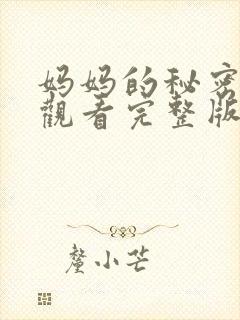 妈妈的秘密
觀看完整版
釐小芒